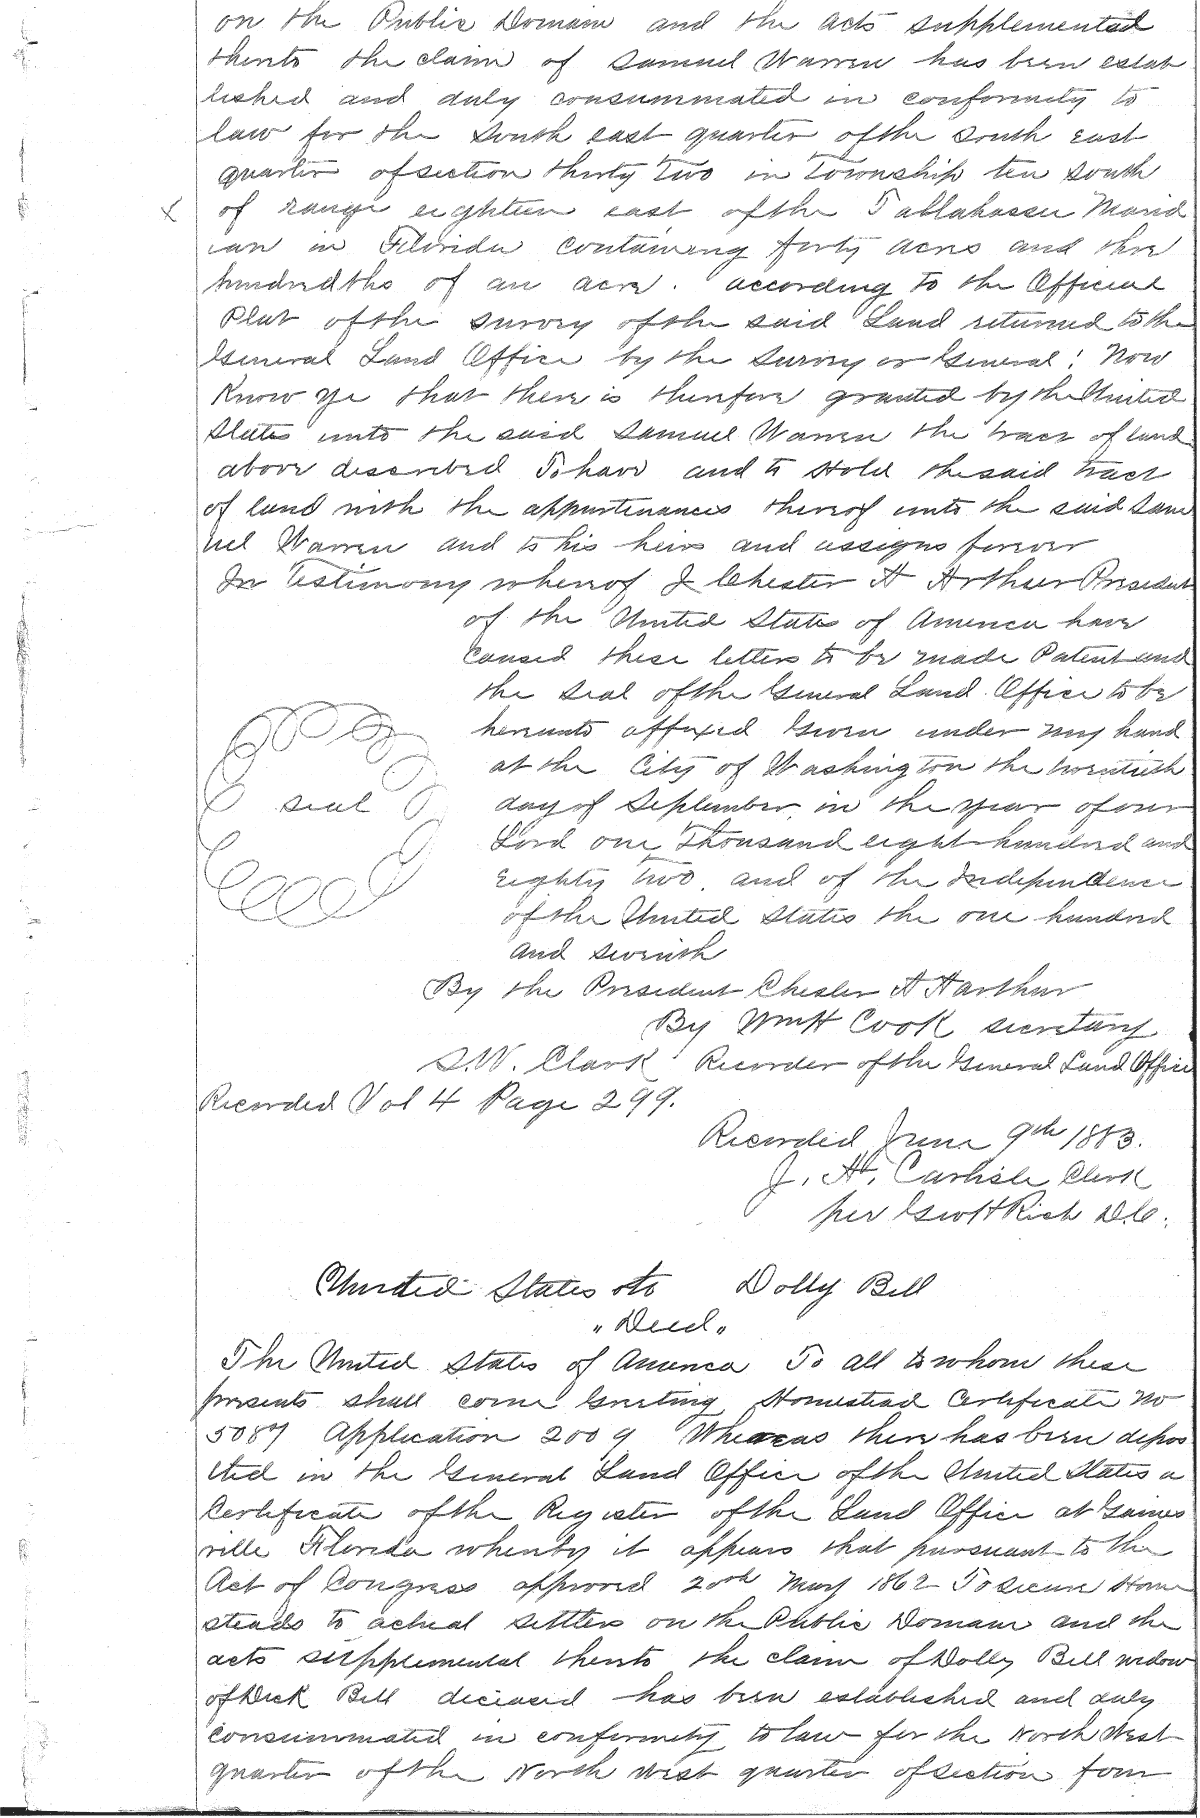 on the Public Domain and the acts supplemented
thereto the claim of Samuel Warren has been estab
lished and duly consummated in conformity to
law for the South east quarter of the South East
quarter of section thirty Two in Township ten South
x of range eighteen east of the Tallahassee Merid
ian in Florida containing forty acres and three
hundredths of an acre. according to the Official
Plat of the survey of the said Land returned to the
General Land Office by the Survey or General: Now
Know Ye that there is therefore granted by the United
States unto the said Samuel Warren the tract of land
above described To have and to Hold the said tract
of land with the appurtenances thereof unto the said Sam
uel Warren and to his heirs and assigns forever
In Testimony whereof I Chester A Arthur President
of the United States of America have
caused these letters to be made Patent and
the Seal of the General Land Office to be
hereunto affixed Given under my hand
at the City of Washington the twentieth
seal day of September in the year of our
Lord one Thousand eight hundred and
Eighty two and of the Independence
of the United States the one hundred
and seventh
By the President Chester A Aarthur
By WmH Cook secretary
S.W. Clark Recorder of the General Land Office
Recorded Vol 4 Page 299.
Recorded June 9th 1883.
J. A. Carlisle Clerk
per Geo H Rich D.C.
United States to Dolly Bell
"Deed"
The United States of America To all to whom these
presents shall come Greeting Homestead Certificate No
5087 Application 2009 Whereas there has been depos
ited in the General Land Office of the United States a
Certificate of the Register of the Land Office at Gaines
ville Florida whereby it appears that pursuant to the
Act of Congress approved 20th May 1862 To secure Home
steads to actual settlers on the Public Domain and the
acts supplemental thereto the claim of Dolly Bell widow
of Dick Bell deceased has been established and duly
consummated in conformity to law for the North West
quarter of the North west quarter of section four